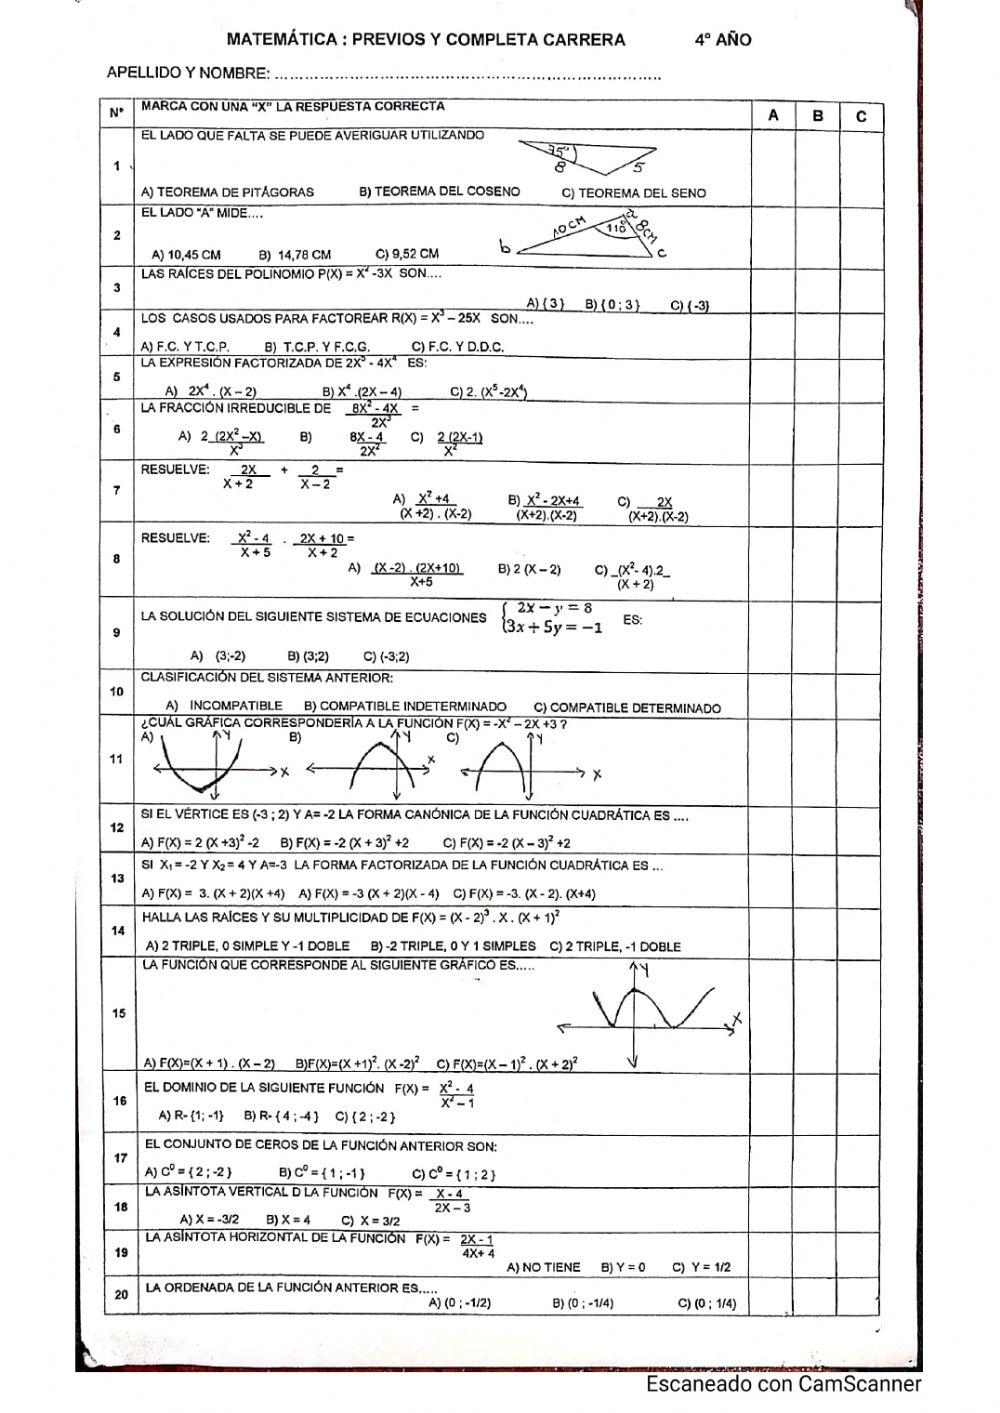 MATEMÁTICA : PREVIOS Y COMPLETA CARRERA 4º AÑO
APELLIDO Y NOMBRE: ........................................................................
Nº MARCA CON UNA "X" LA RESPUESTA CORRECTA A B C
1 EL LADO QUE FALTA SE PUEDE AVERIGUAR UTILIZANDO
35° 8 5
A) TEOREMA DE PITÁGORAS B) TEOREMA DEL COSENO C) TEOREMA DEL SENO
2 EL LADO "A" MIDE....
b 10 CM a 110° 8CM c
A) 10,45 CM B) 14,78 CM C) 9,52 CM
3 LAS RAÍCES DEL POLINOMIO P(X) = X² -3X SON....
A) { 3 } B) { 0 ; 3 } C) { -3}
4 LOS CASOS USADOS PARA FACTOREAR R(X) = X³ – 25X SON....
A) F.C. Y T.C.P. B) T.C.P. Y F.C.G. C) F.C. Y D.D.C.
5 LA EXPRESIÓN FACTORIZADA DE 2X⁵ - 4X⁴ ES:
A) 2X⁴ . (X – 2) B) X⁴ .(2X – 4) C) 2. (X⁵ -2X⁴)
6 LA FRACCIÓN IRREDUCIBLE DE 8X² - 4X =
2X³
A) 2 (2X² –X) B) 8X - 4 C) 2 (2X-1)
X³ 2X² X²
7 RESUELVE: 2X + 2 =
X + 2 X – 2
A) X² +4 B) X² - 2X+4 C) 2X
(X +2) . (X-2) (X+2).(X-2) (X+2).(X-2)
8 RESUELVE: X² - 4 . 2X + 10 =
X + 5 X + 2
A) (X -2) . (2X+10) B) 2 (X – 2) C) (X² - 4).2
X+5 (X + 2)
9 LA SOLUCIÓN DEL SIGUIENTE SISTEMA DE ECUACIONES { 2x – y = 8 ES:
3x + 5y = –1
A) (3;-2) B) (3;2) C) (-3;2)
10 CLASIFICACIÓN DEL SISTEMA ANTERIOR:
A) INCOMPATIBLE B) COMPATIBLE INDETERMINADO C) COMPATIBLE DETERMINADO
11 ¿CUÁL GRÁFICA CORRESPONDERÍA A LA FUNCIÓN F(X) = -X² – 2X +3 ?
A) Y B) Y C) Y
X X X
12 SI EL VÉRTICE ES (-3 ; 2) Y A= -2 LA FORMA CANÓNICA DE LA FUNCIÓN CUADRÁTICA ES ....
A) F(X) = 2 (X +3)² -2 B) F(X) = -2 (X + 3)² +2 C) F(X) = -2 (X – 3)² +2
13 SI X₁ = -2 Y X₂ = 4 Y A=-3 LA FORMA FACTORIZADA DE LA FUNCIÓN CUADRÁTICA ES ...
A) F(X) = 3. (X + 2)(X +4) A) F(X) = -3 (X + 2)(X - 4) C) F(X) = -3. (X - 2). (X+4)
14 HALLA LAS RAÍCES Y SU MULTIPLICIDAD DE F(X) = (X - 2)³ . X . (X + 1)²
A) 2 TRIPLE, 0 SIMPLE Y -1 DOBLE B) -2 TRIPLE, 0 Y 1 SIMPLES C) 2 TRIPLE, -1 DOBLE
15 LA FUNCIÓN QUE CORRESPONDE AL SIGUIENTE GRÁFICO ES.....
Y
X
A) F(X)=(X + 1) . (X – 2) B)F(X)=(X +1)². (X -2)² C) F(X)=(X – 1)² . (X + 2)²
16 EL DOMINIO DE LA SIGUIENTE FUNCIÓN F(X) = X² - 4
X² – 1
A) R- {1; -1} B) R- { 4 ; -4 } C) { 2 ; -2 }
17 EL CONJUNTO DE CEROS DE LA FUNCIÓN ANTERIOR SON:
A) C⁰ = { 2 ; -2 } B) C⁰ = { 1 ; -1 } C) C⁰ = { 1 ; 2 }
18 LA ASÍNTOTA VERTICAL D LA FUNCIÓN F(X) = X - 4
2X – 3
A) X = -3/2 B) X = 4 C) X = 3/2
19 LA ASÍNTOTA HORIZONTAL DE LA FUNCIÓN F(X) = 2X - 1
4X+ 4
A) NO TIENE B) Y = 0 C) Y = 1/2
20 LA ORDENADA DE LA FUNCIÓN ANTERIOR ES.....
A) (0 ; -1/2) B) (0 ; -1/4) C) (0 ; 1/4)
Escaneado con CamScanner